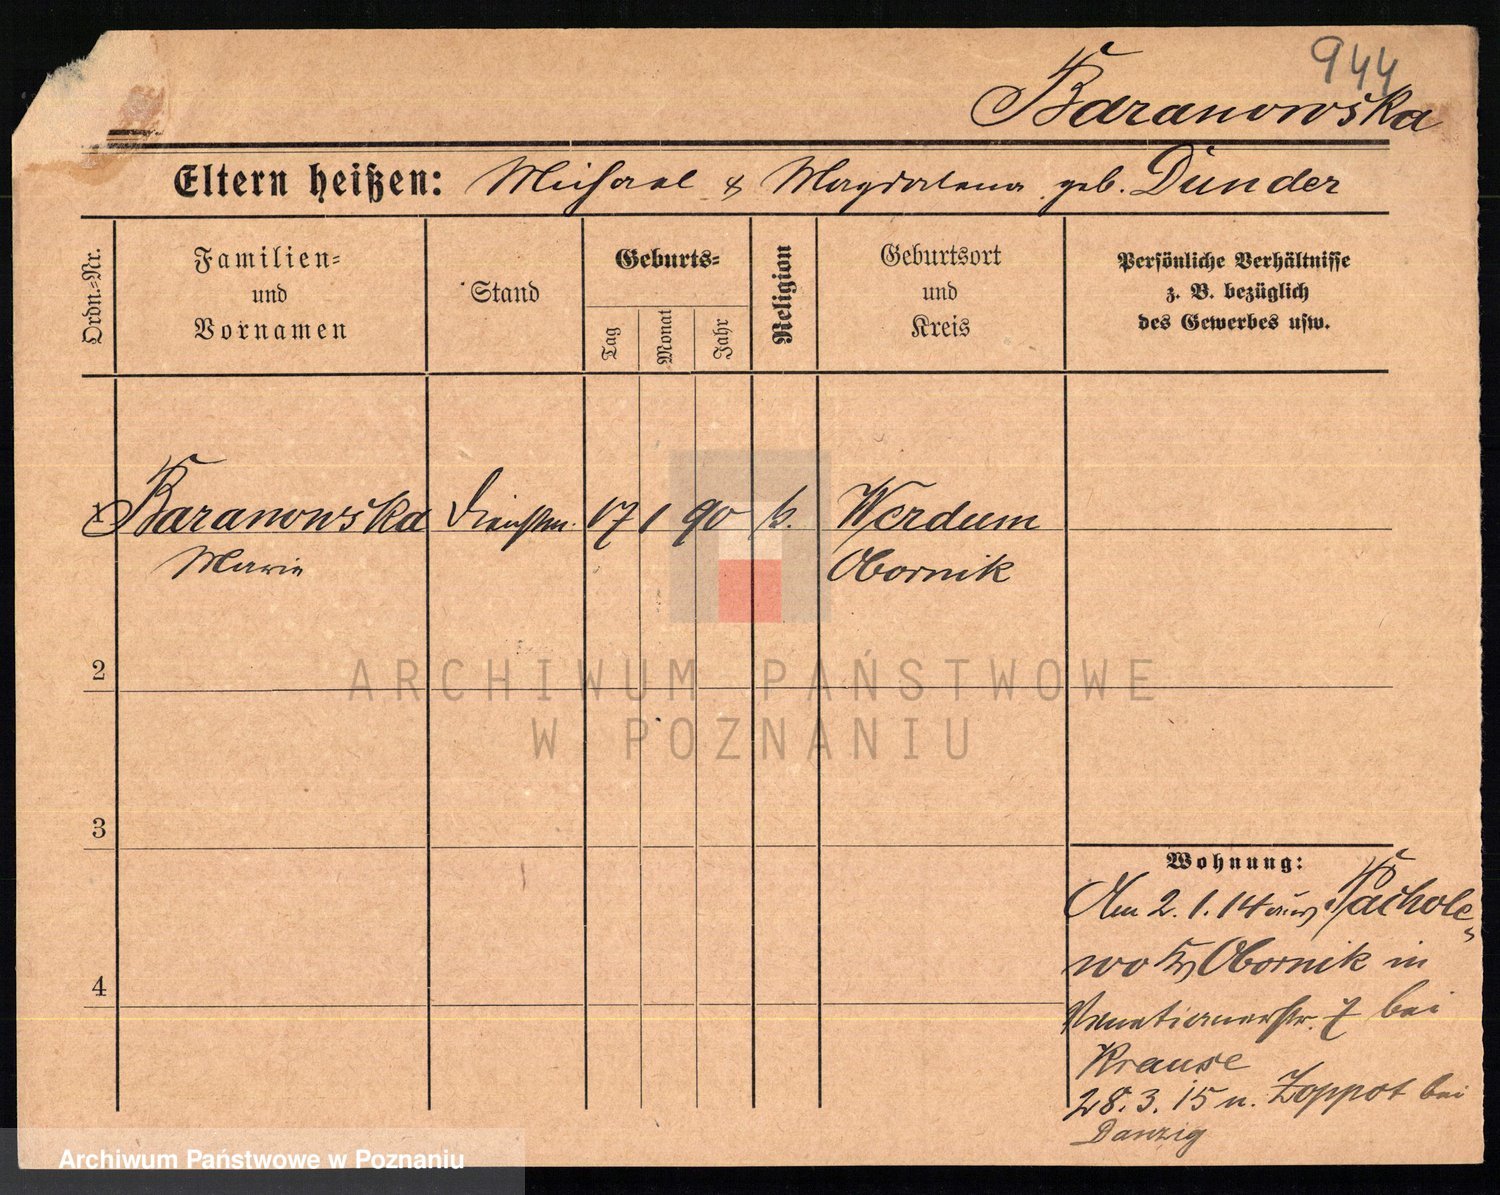 944
Baranowska
Eltern heißen: Michael & Magdalena geb. Dünder
Ordn.=Nr.
Familien=
und
Vornamen
Stand
Geburts=
Tag
Monat
Jahr
Religion
Geburtsort
und
Kreis
Persönliche Verhältnisse
z. B. bezüglich
des Gewerbes usw.
1 Baranowska Dienstm. 17 1 90 k. Werdum
Marie Obornik
2
3
4
Wohnung:
Am 2. 1. 14 aus Pachole-
wo Krs Obornik in
Venetianerstr. 7 bei
Krause
28. 3. 15 n. Zoppot bei
Danzig
ARCHIWUM PAŃSTWOWE
W POZNANIU
Archiwum Państwowe w Poznaniu